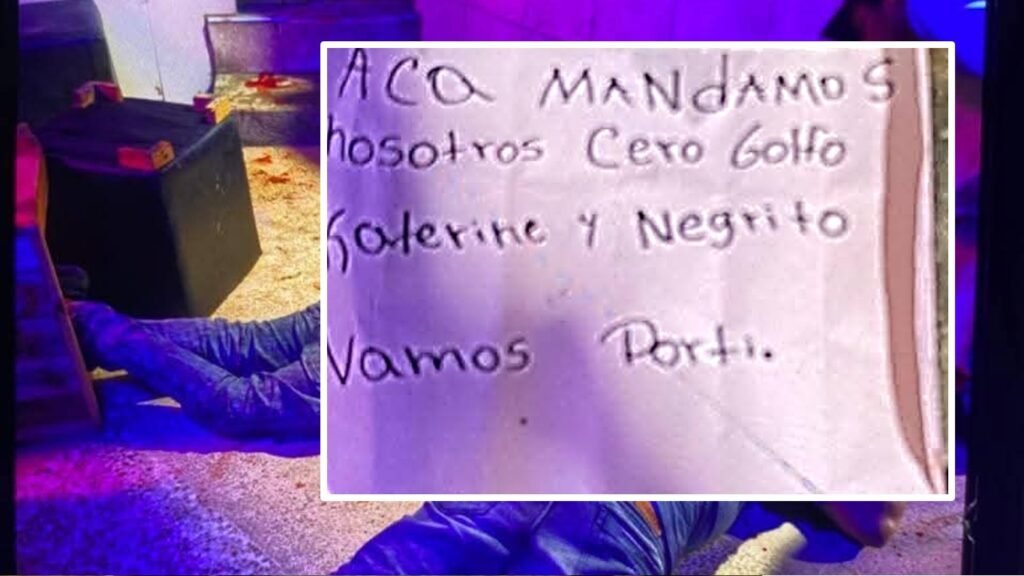 ACA MANDAMOS
nosotros Cero Golfo
Katerine y Negrito
Vamos Porti.